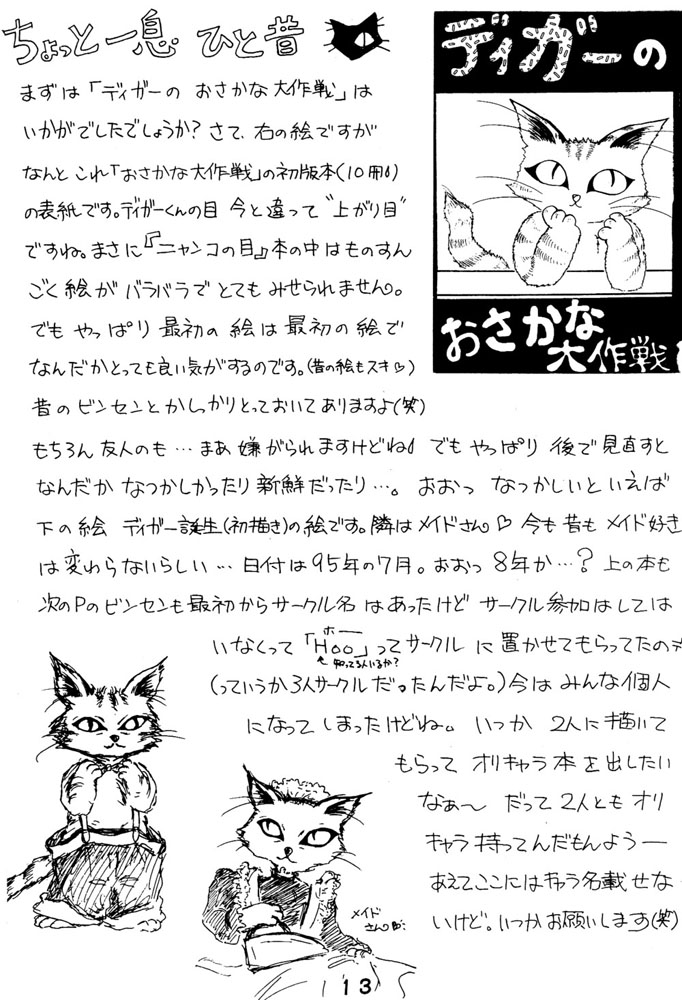 ちょっと一息 ひと昔
ディガーの
おさかな
大作戦
まずは「ディガーの おさかな大作戦」は
いかがでしたでしょうか？さて、右の絵ですが
なんと これ「おさかな大作戦」の初版本(10冊)
の表紙です。ディガーくんの目 今と違って“上がり目”
ですね。まさに『ニャンコの目』本の中はものすん
ごく絵が バラバラで とても みせられません。
でも やっぱり 最初の 絵は 最初の 絵で
なんだかとっても良い気がするのです。(昔の絵もスキ♡)
昔のビンセンとかしっかりとっておいてありますよ(笑)
もちろん 友人のも…まあ 嫌がられますけどね でも やっぱり 後で 見直すと
なんだか なつかしかったり 新鮮だったり…。おおっ なつかしいといえば
下の絵 ディガー誕生(初描き)の絵です。隣はメイドさん♡ 今も昔も メイド好き
は変わらないらしい… 日付は95年の7月。おおっ 8年か…？ 上の本も
次のPのビンセンも最初からサークル名 はあったけど サークル参加はしては
いなくって「Hoo」ってサークル に置かせてもらってたの
ホー
知ってる人いるか？
(っていうか3人サークルだったんだよ。)今は みんな個人
になって しまったけどね。いつか 2人に描いて
もらって オリキャラ本を出したい
なぁ〜 だって 2人とも オリ
キャラ 持ってんだもんよう—
あえてここにはキャラ名載せな
いけど。いつかお願いします(笑)
メイド
さん
13